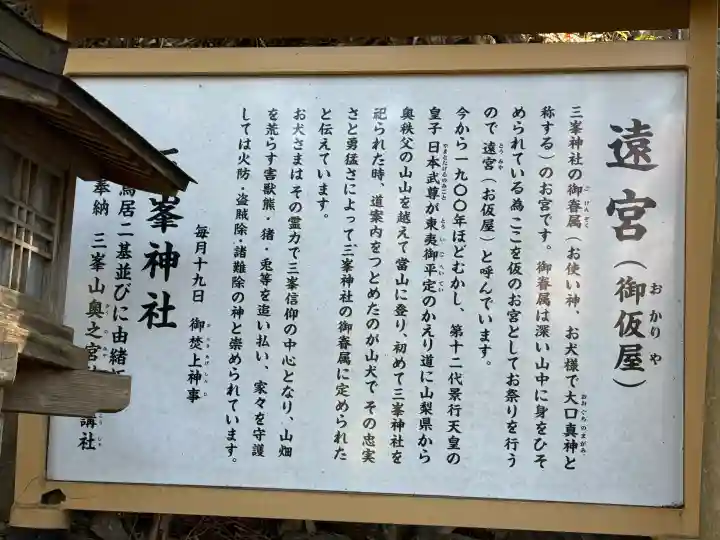 遠宮（御仮屋）
おかりや
三峯神社の御眷属（お使い神、お犬様で大口真神と
ごけんぞく
おおぐちのまがみ
称する）のお宮です。御眷属は深い山中に身をひそ
められている為ここを仮のお宮としてお祭りを行う
ので 遠宮（お仮屋）と呼んでいます。
とうみや
今から一九〇〇年ほどむかし、第十二代景行天皇の
皇子 日本武尊が東夷御平定のかえり道に山梨県から
やまとたけるのみこと
とういごへいてい
奥秩父の山山を越えて當山に登り、初めて三峯神社を
祀られた時、道案内をつとめたのが山犬で その忠実
さと勇猛さによって三峯神社の御眷属に定められた
と伝えています。
お犬さまはその霊力で三峯信仰の中心となり、山畑
を荒らす害獣熊・猪・兎等を追い払い、家々を守護
しては火防・盗賊除・諸難除の神と崇められています。
毎月十九日 御焚上神事
おたきあげしんじ
峯神社
鳥居二基並びに由緒
奉納 三峯山奥之宮
おくのみや
講社
こうしゃ